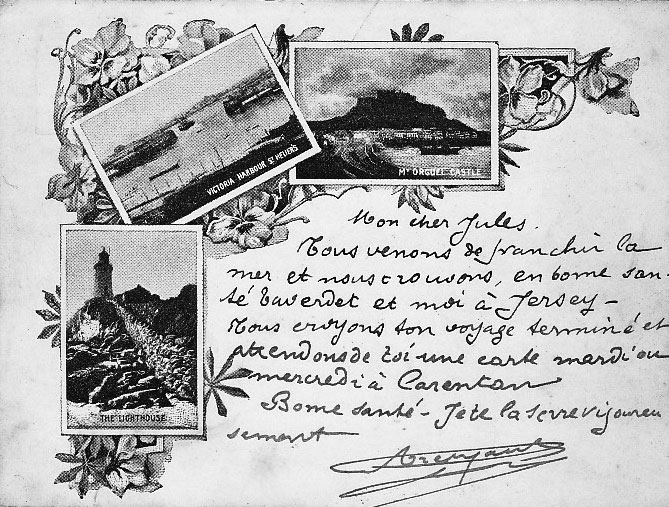 VICTORIA HARBOUR ST HELIERS
MT ORGUEIL CASTLE
THE LIGHTHOUSE
Mon cher Jules.
Nous venons de franchir la
mer et nous trouvons, en bonne san-
té Taverdet et moi à Jersey –
Nous croyons ton voyage terminé et
attendons de toi une carte mardi ou
mercredi à Carentan
Bonne santé – Je te la serre vigoureu
sement